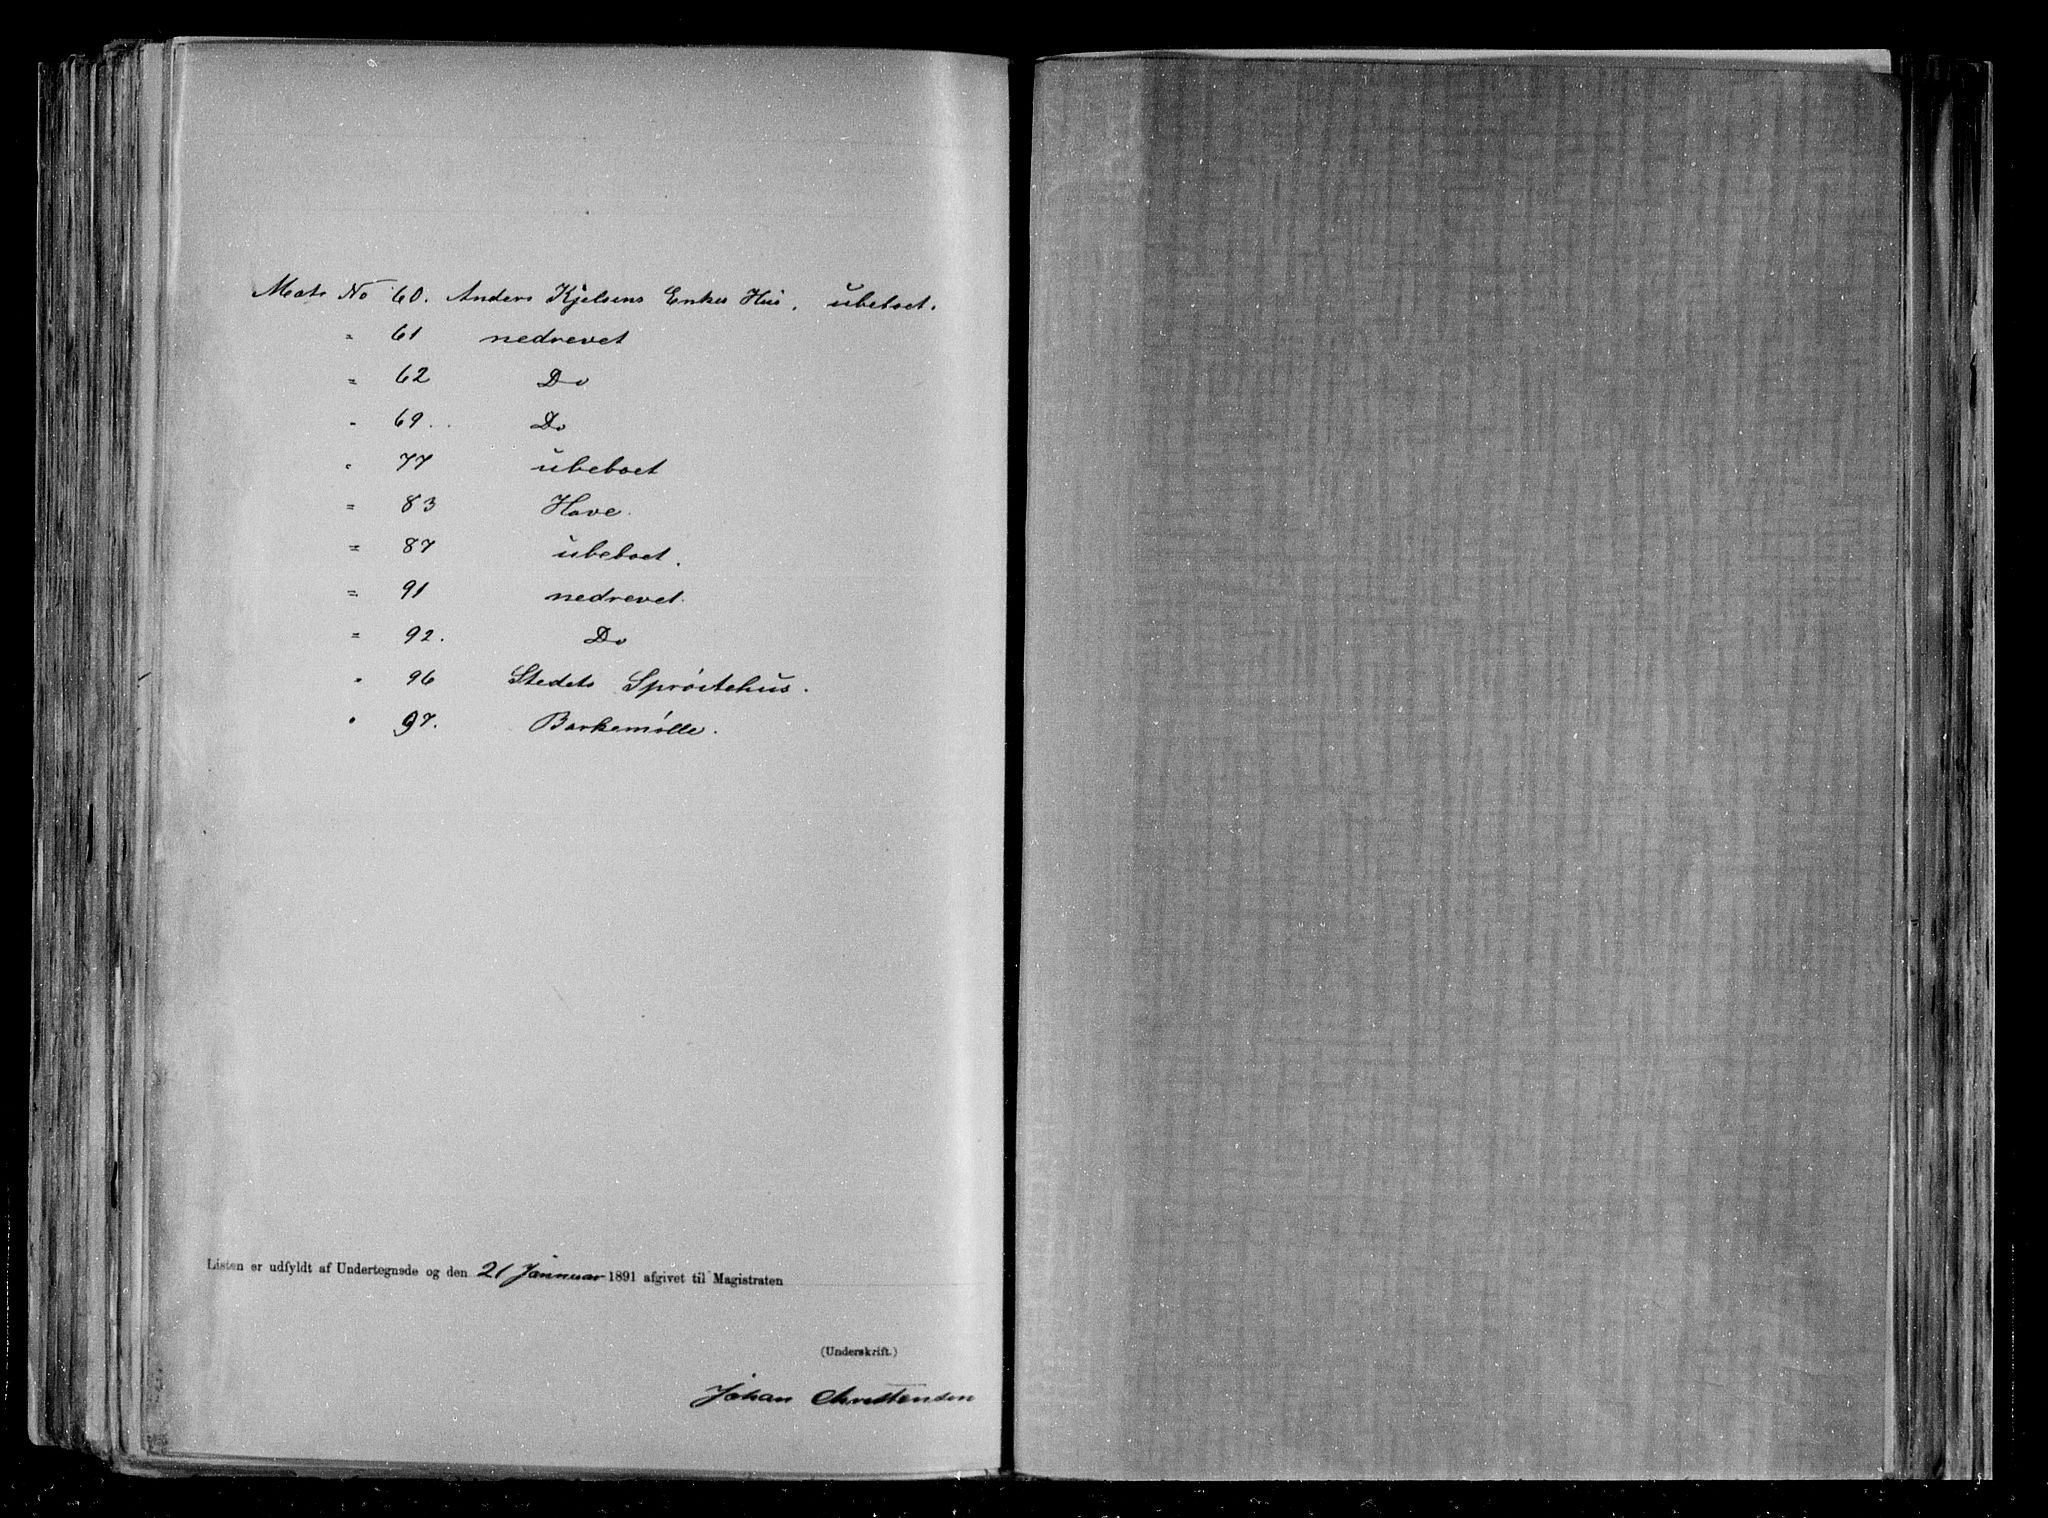 Matr No 60. Anders Kjelsens Enkes Hus. ubeboet.
" 61 nedrevet
" 62 Do
" 69. Do
" 77 ubeboet
" 83 Have.
" 87 ubeboet.
" 91 nedrevet.
" 92. Do
" 96 Stedets Sprøitehus.
" 97. Barkemølle.
Listen er udfyldt af Undertegnede og den 21 Januar 1891 afgivet til Magistraten
(Underskrift.)
Johan Christensen